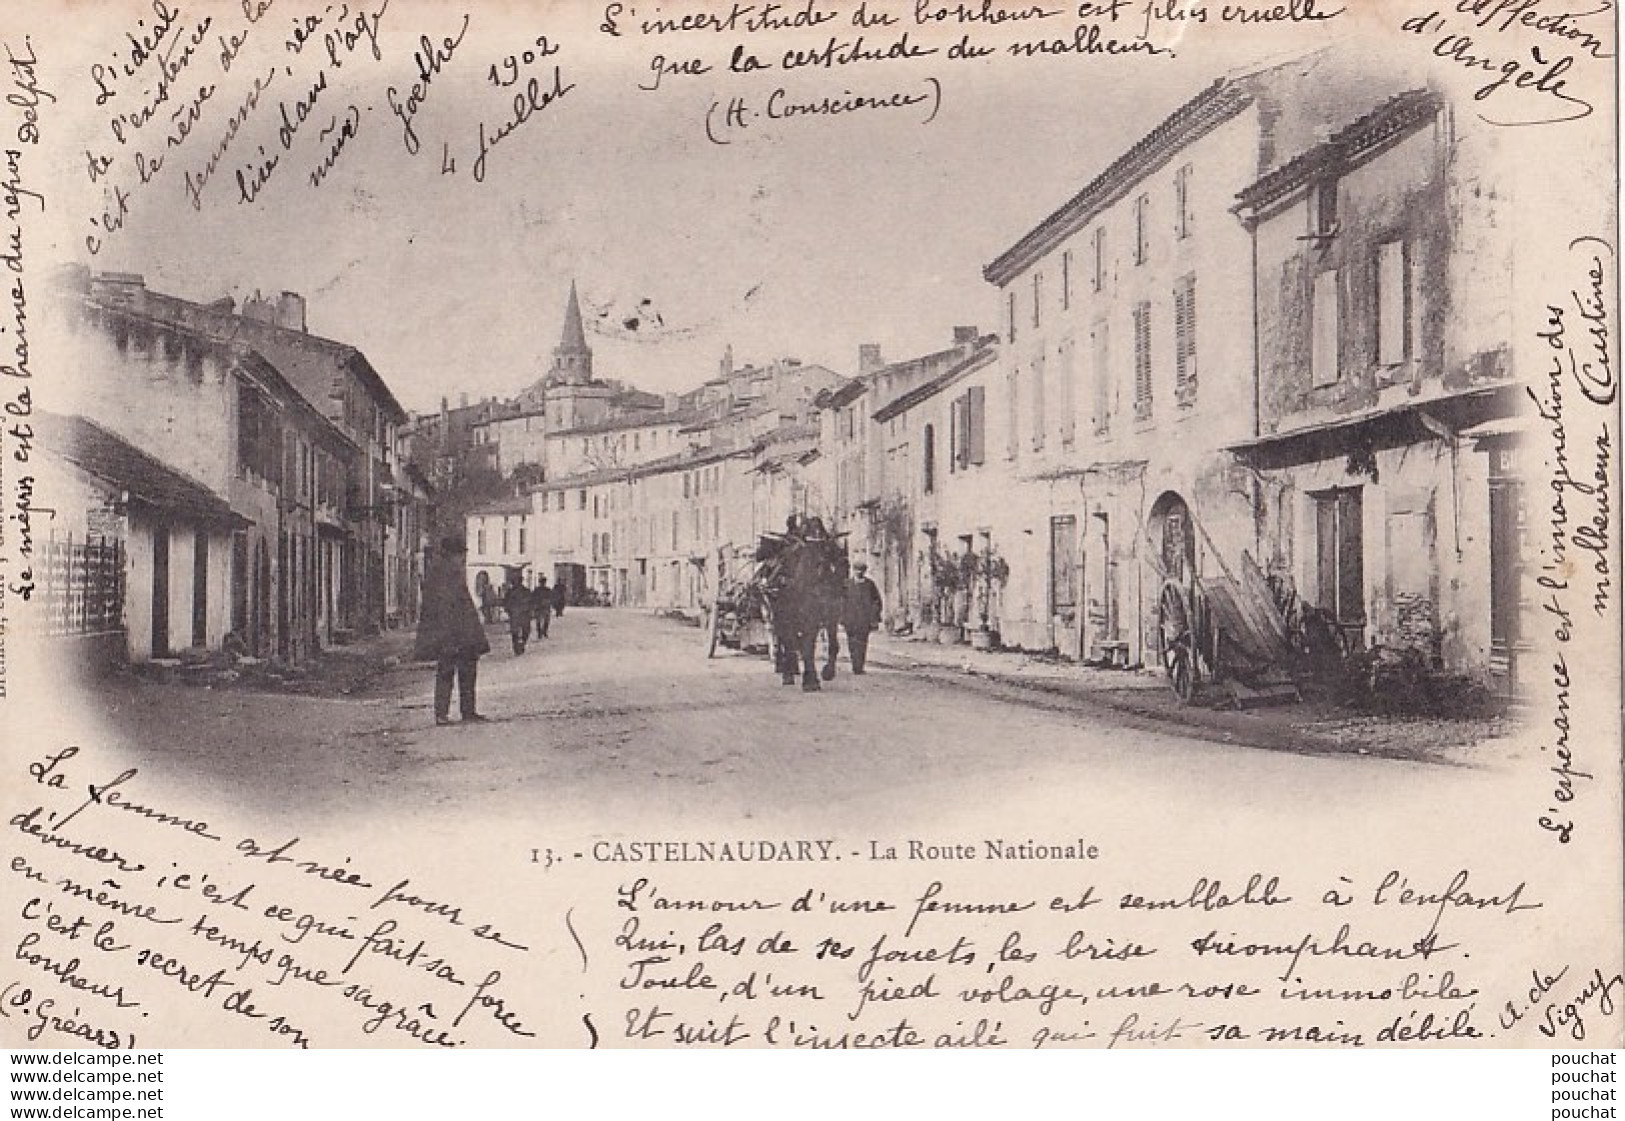 L'idéal
de l'existence
c'est le rêve de la
jeunesse, réa-
lisé dans l'âge
mûr. Goethe
4 Juillet 1902
L'incertitude du bonheur est plus cruelle
que la certitude du malheur.
(H. Conscience)
Affection
d'Angèle
Le mépris est la haine du repos Delpit.
L'espérance est l'imagination des
malheureux (Custine)
13. - CASTELNAUDARY. - La Route Nationale
La femme est née pour se
dévouer ; c'est ce qui fait sa force
en même temps que sa grâce.
c'est le secret de son
bonheur.
(O. Gréard)
L'amour d'une femme est semblable à l'enfant
Qui, las de ses jouets, les brise triomphant.
Foule, d'un pied volage, une rose immobile
Et suit l'insecte ailé qui fuit sa main débile.
A. de
Vigny
www.delcampe.net
www.delcampe.net
www.delcampe.net
www.delcampe.net
pouchat
pouchat
pouchat
pouchat